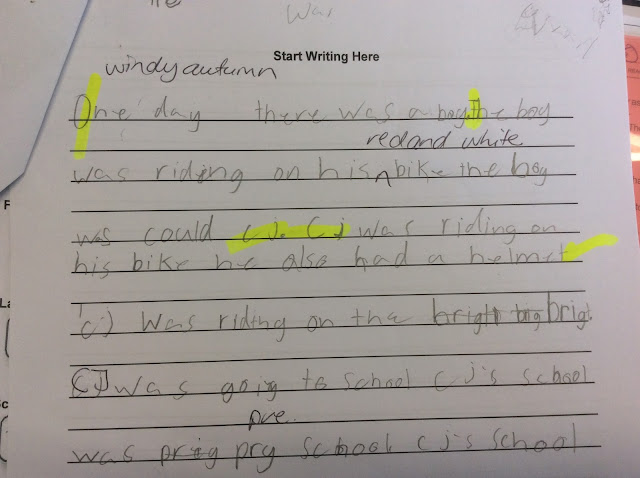 Was
Start Writing Here
windy autumn
One day there was a boy the boy
red and white
was riding on his ^ bike the boy
was could cj. Cj was riding on
his bike he also had a helmet
cj was riding on the bright big brigt.
CJ was going to school cj's school
pre
was prig pry school cj's school